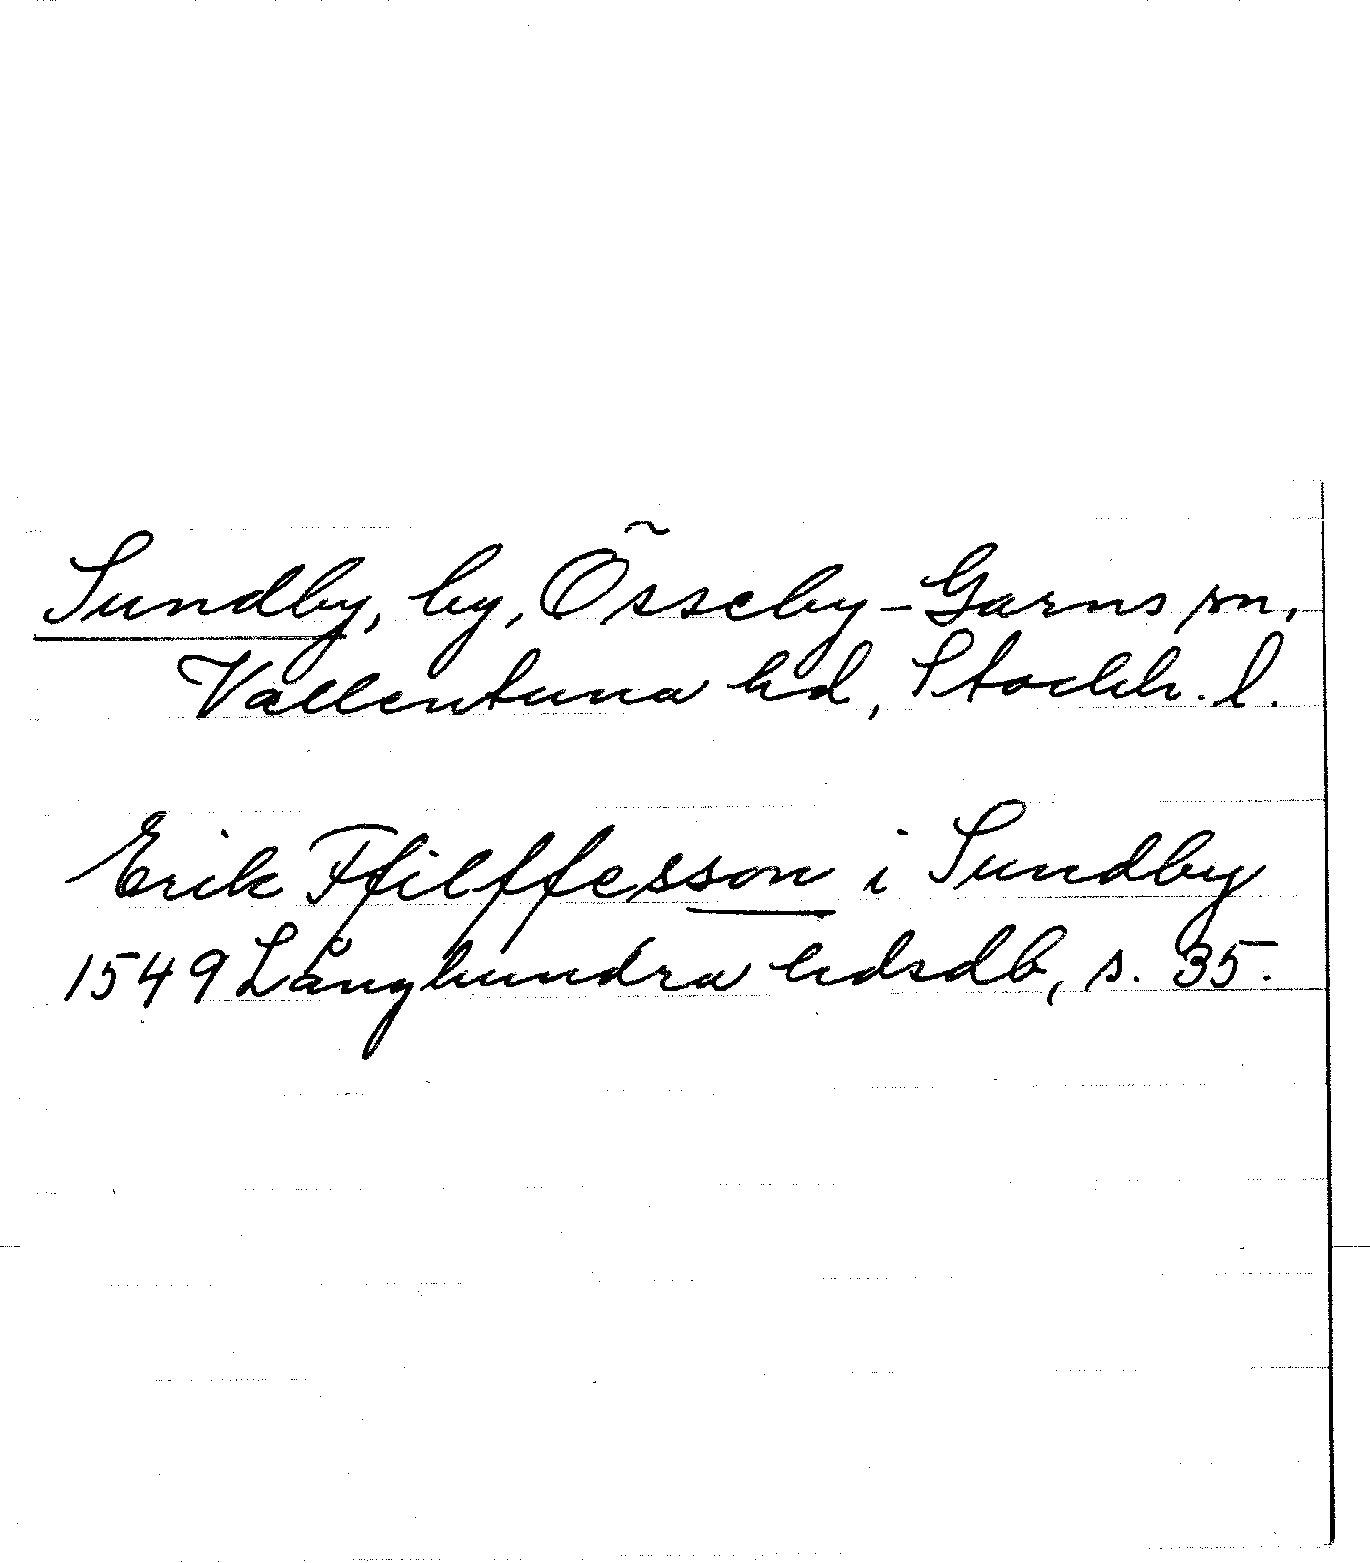 Sundby, by, Össeby-Garns sn,
Vallentuna hd, Stockh. l.
Erik Ffilffesson i Sundby
1549 Långhundra hdsdb, s. 35.